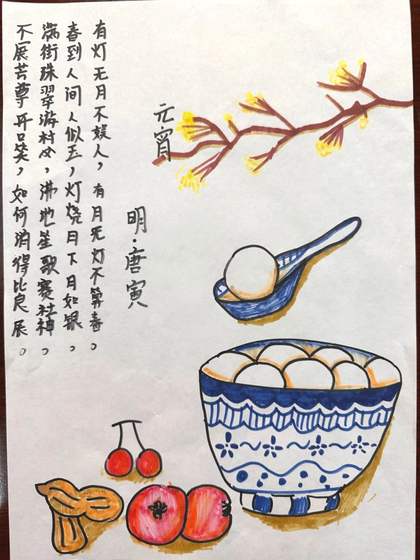 元宵
明·唐寅
有灯无月不娱人，有月无灯不算春。
春到人间人似玉，灯烧月下月如银。
满街珠翠游村女，沸地笙歌赛社神。
不展芳尊开口笑，如何消得此良辰。